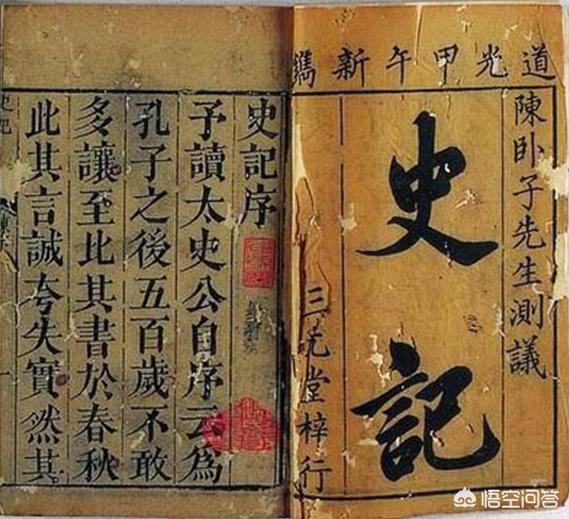 道光甲午新鐫
陳卧子先生測議
史記
三元堂梓行
史記序
予讀太史公自序云為
孔子之後五百歲不敢
多讓至比其書於春秋
此其言誠夸失實然其
史記
一
悟空问答